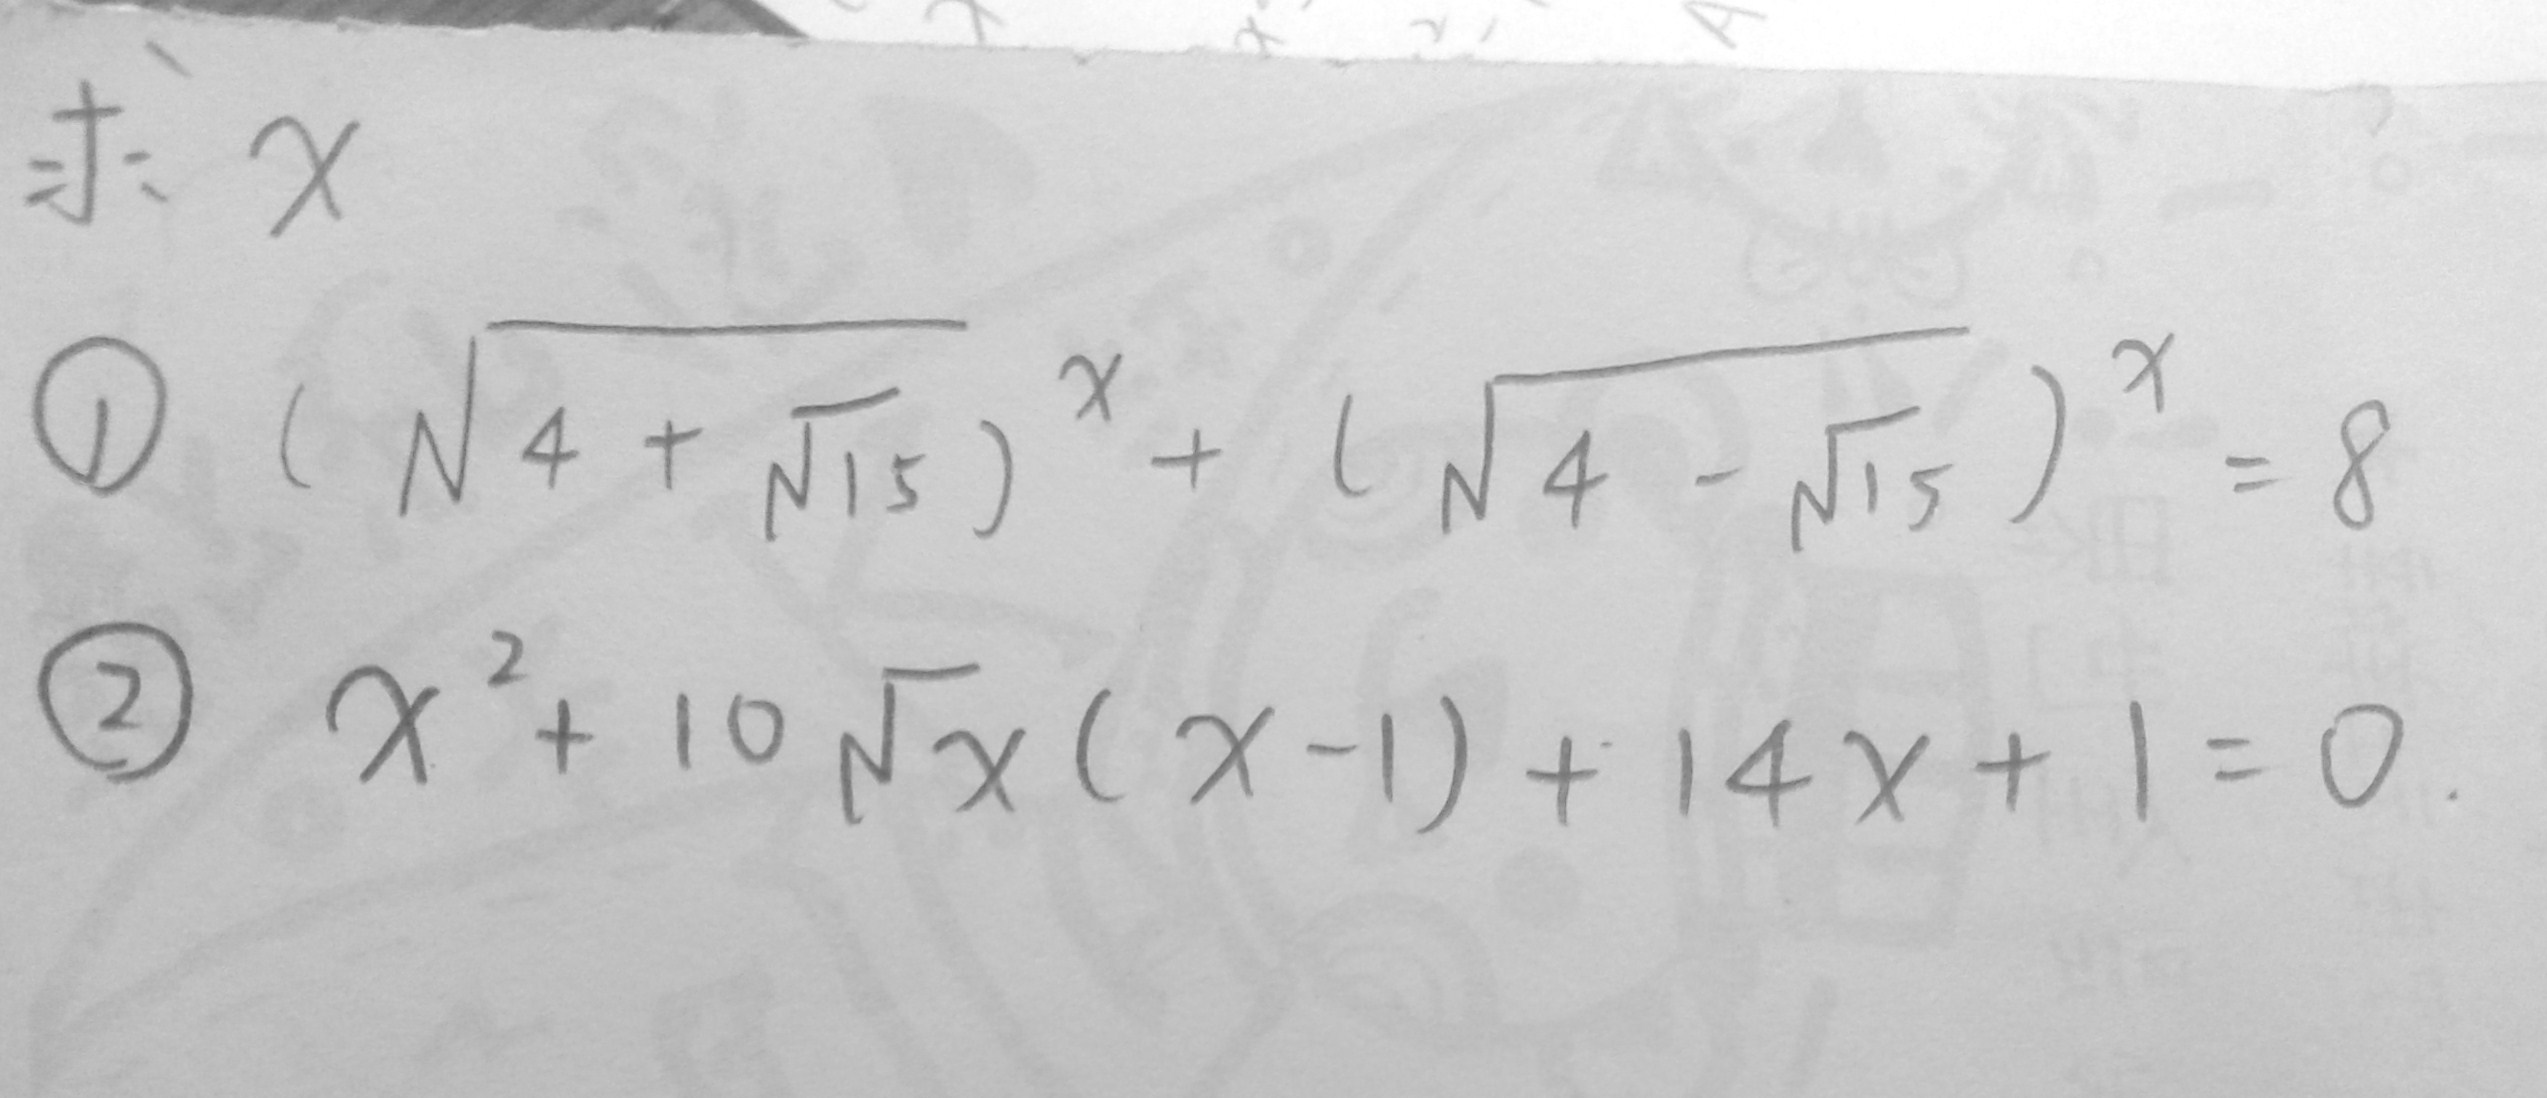 求 x
① (√(4+√15))^x + (√(4-√15))^x = 8
② x² + 10√x (x-1) + 14x + 1 = 0.